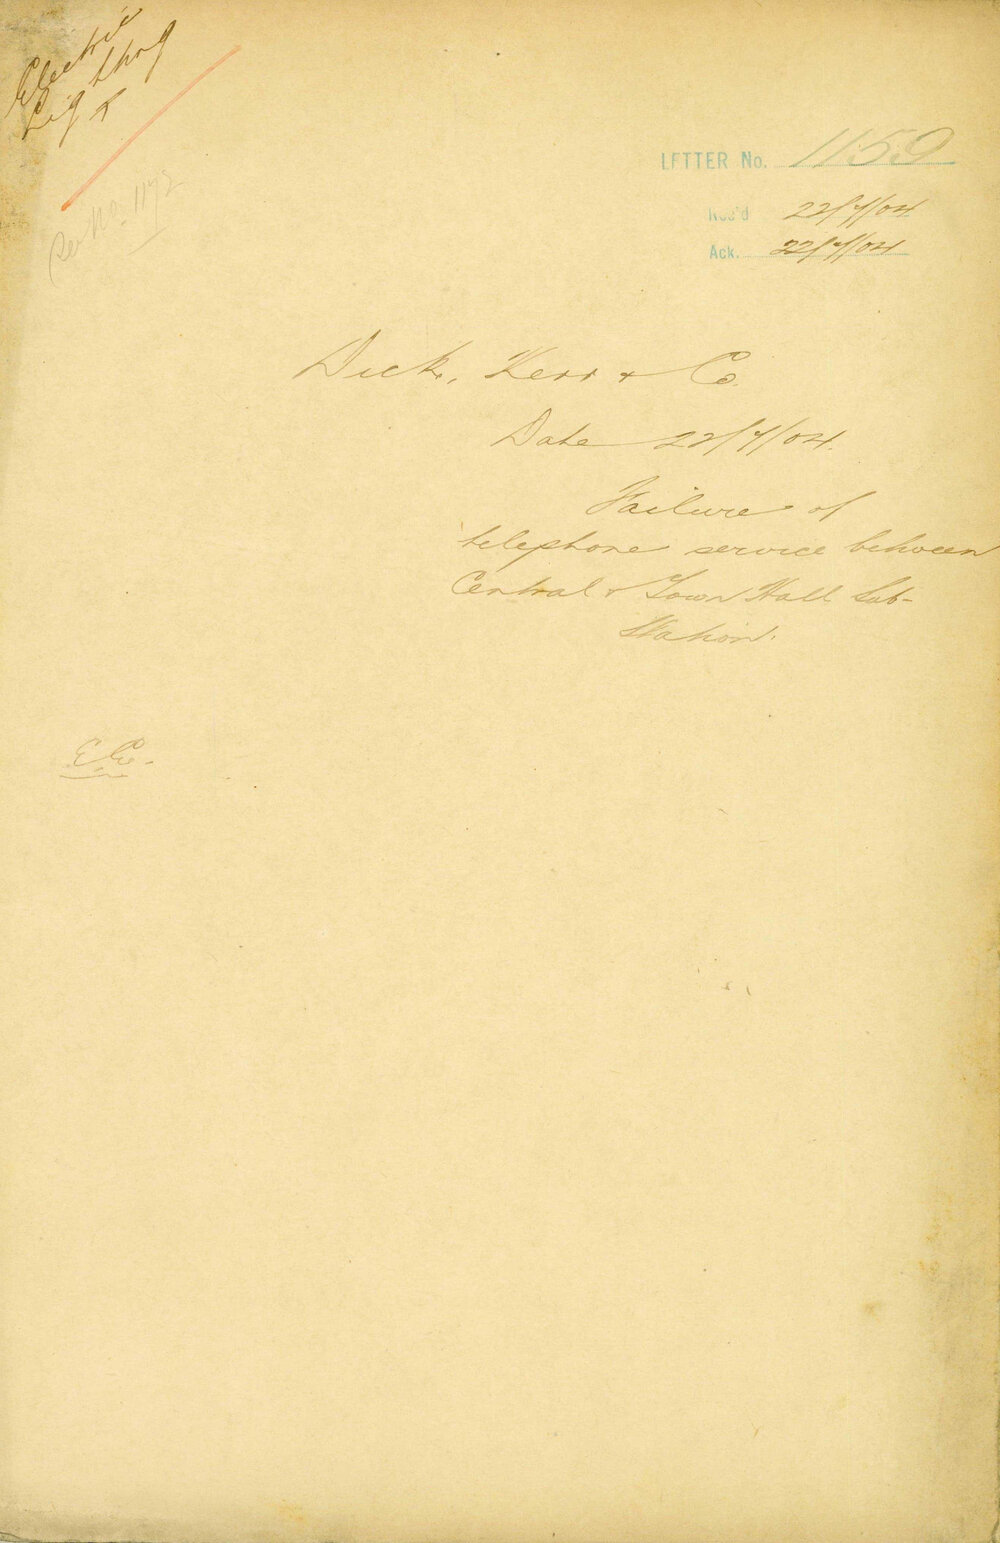 Electric
Lighting
LETTER No. 1159
Rec'd 22/7/04
Ack. 22/7/04
See No. 1172
Dick, Kerr & Co.
Date 22/7/04.
Failure of
telephone service between
Central & Town Hall Sub-
Station.